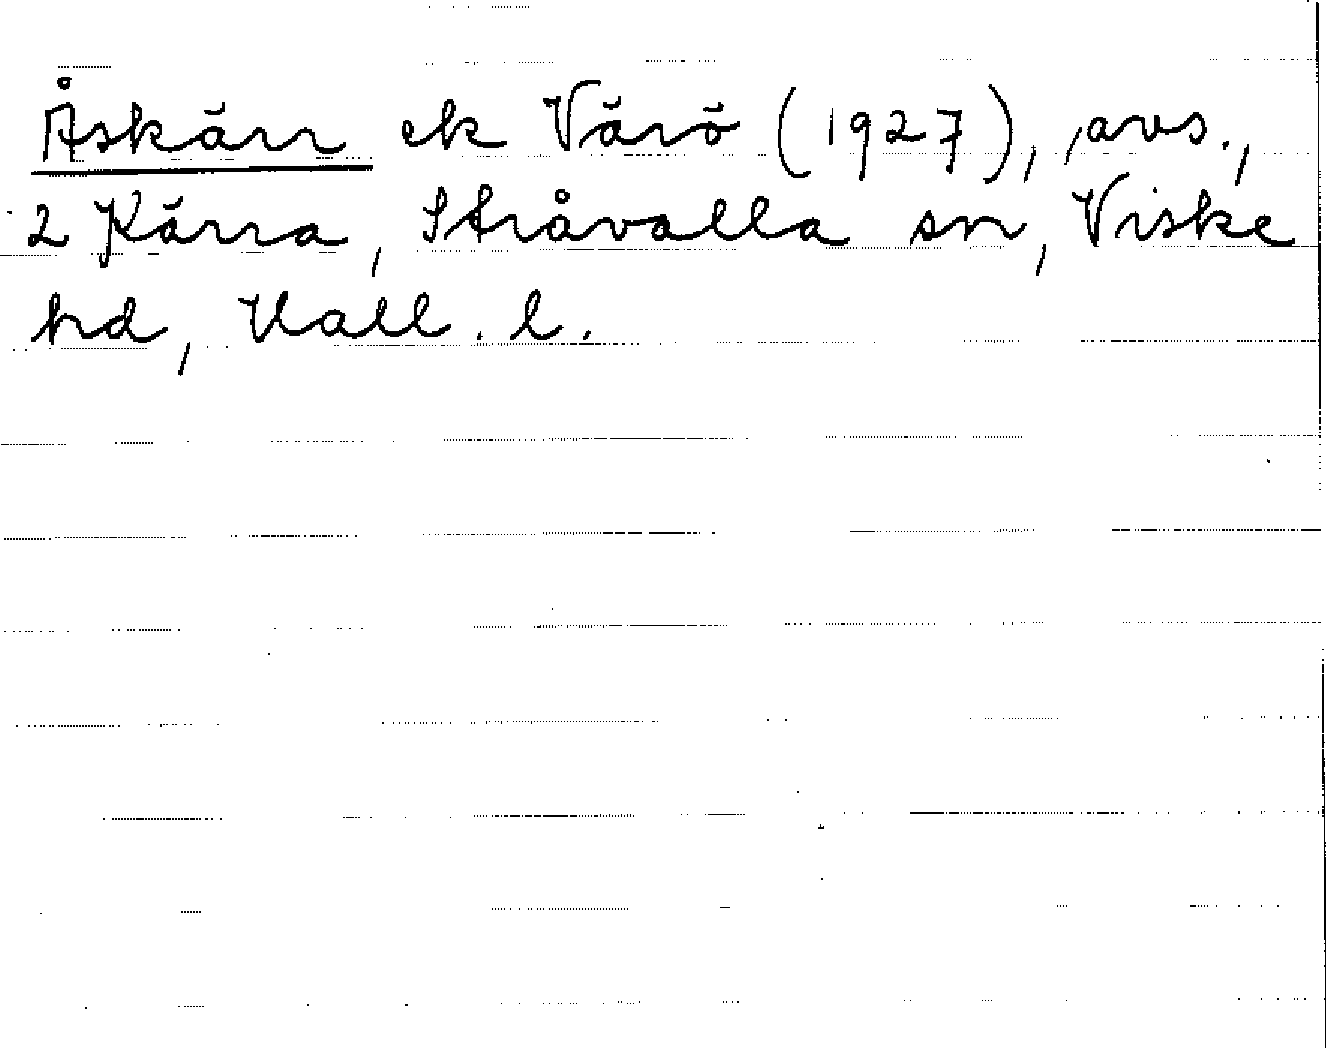 Åskärr ek Värö (1927), avs.,
2 Kärra, Stråvalla sn, Viske
hd, Hall. l.